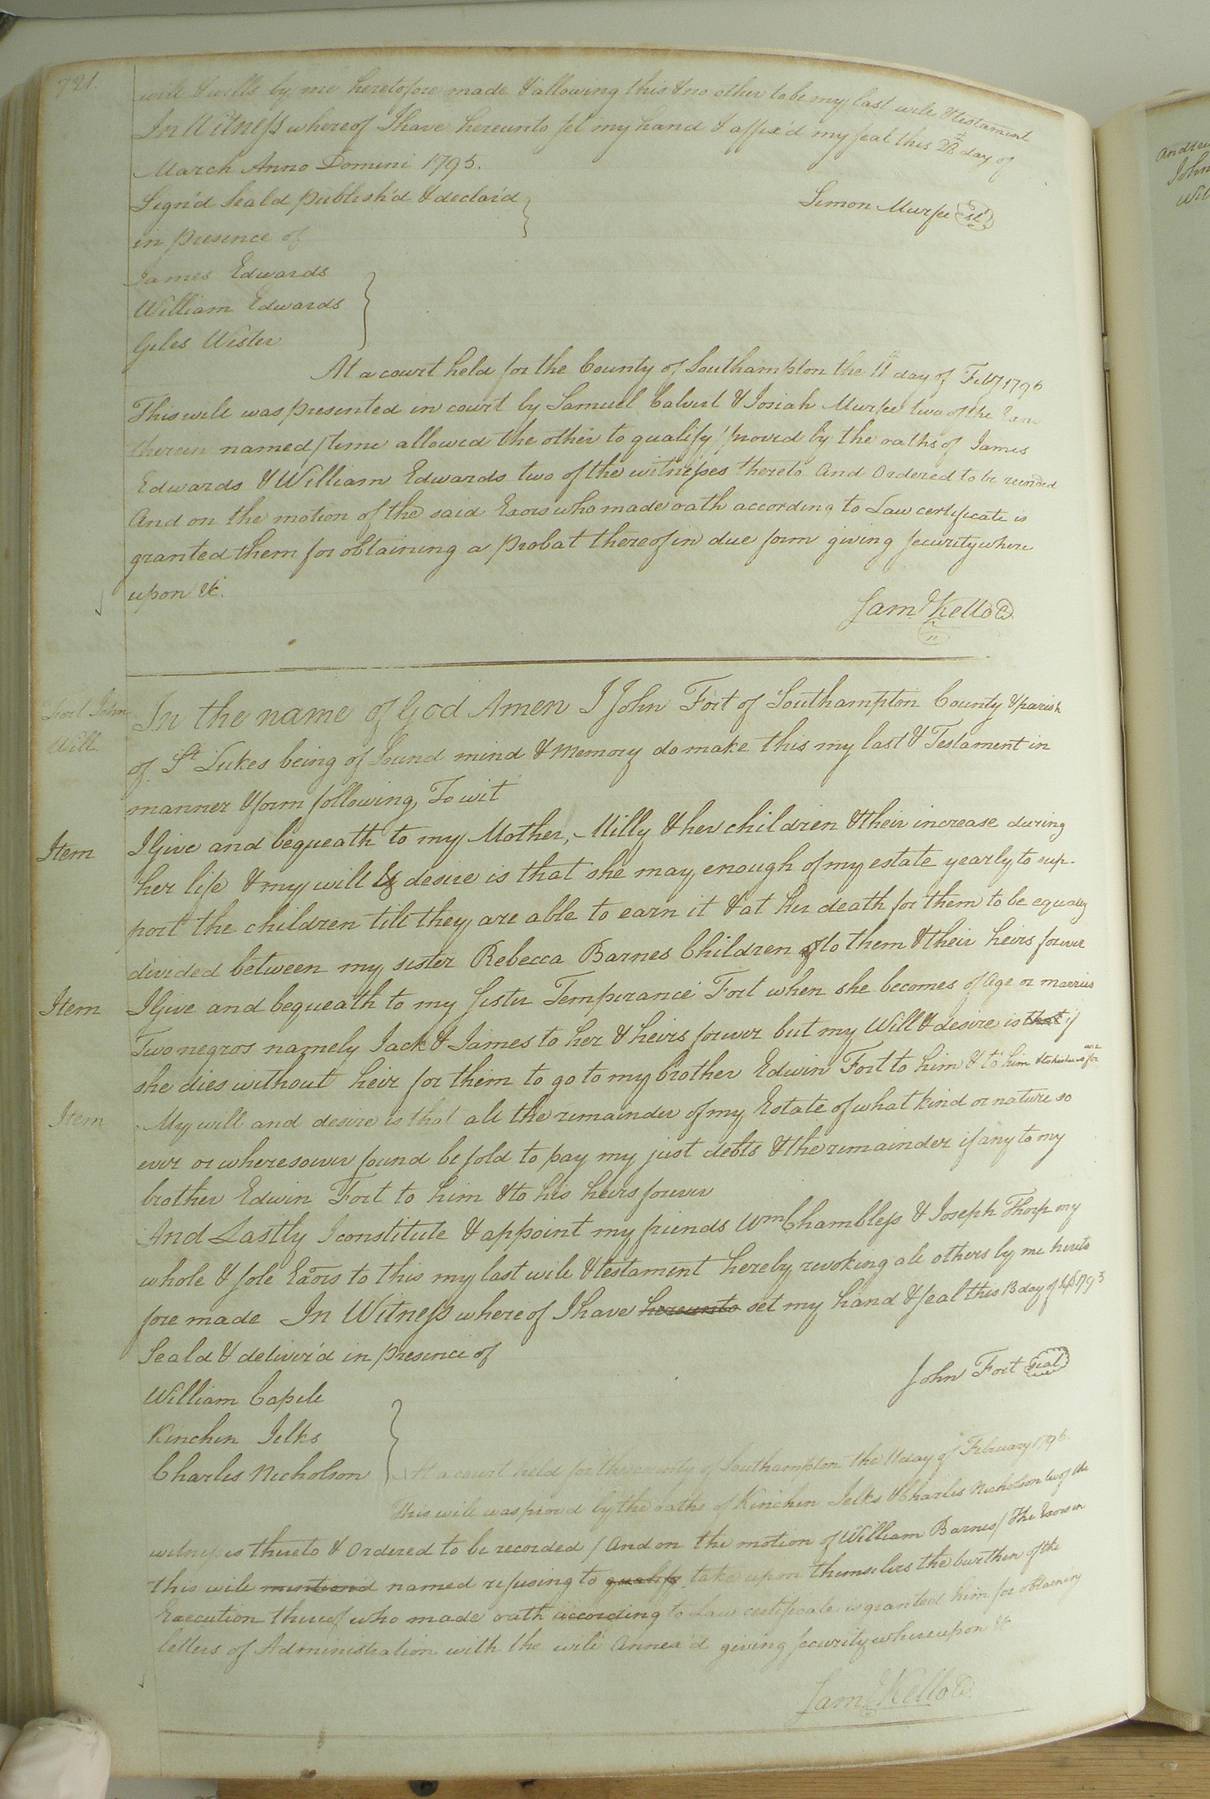 721.
will & wills by me heretofore made & allowing this & no other to be my last will & testament
In Witness whereof I have hereunto set my hand & affix'd my seal this 28th day of
March Anno Domini 1795.
Sign'd Seal'd publish'd & declar'd
in presence of
Simon Murfee
James Edwards
William Edwards
Giles Wister
At a court held for the County of Southampton the 11th day of Feby 1796
This will was presented in court by Samuel Calvert & Josiah Murfee two of the Exrs
therein named / time allowed the other to qualify / proved by the oaths of James
Edwards & William Edwards two of the witnesses thereto And Ordered to be recorded
And on the motion of the said Exors who made oath according to Law certificate is
granted them for obtaining a probat thereof in due form giving security where
upon &c.
Saml Kello C
Fort John
Will
In the name of God Amen I John Fort of Southampton County & parish
of St Lukes being of Sound mind & Memory do make this my last & Testament in
manner & form following, To wit
Item I Give and bequeath to my Mother, Milly & her children & their increase during
her life & my will & desire is that she may enough of my estate yearly to sup-
port the children till they are able to earn it & at her death for them to be equally
divided between my sister Rebecca Barnes Children to them & their heirs forever
Item I Give and bequeath to my Sister Temperance Fort when she becomes of Age or marries
Two negros namely Jack & James to her & heirs forever but my Will & desire is that if
she dies without heir for them to go to my brother Edwin Fort to him & to him & to his heirs for
ever
Item My will and desire is that all the remainder of my Estate of what kind or nature so
ever or wheresoever found be sold to pay my just debts & the remainder if any to my
brother Edwin Fort to him & to his heirs forever
And Lastly I constitute & appoint my friends Wm Chambless & Joseph Thorp my
whole & sole Exors to this my last will & testament hereby revoking all others by me hereto
fore made In Witness whereof I have hereunto set my hand & seal this 13 day of 1793
Seal'd & deliver'd in presence of
John Fort Seal
William Capell
Kinchin Jelks
Charles Nicholson
At a court held for the county of Southampton the 11 day of February 1796
This will was proved by the oaths of Kinchin Jelks & Charles Nicholson two of the
witnesses thereto & Ordered to be recorded / And on the motion of William Barnes / The Exors in
this will mentioned named refusing to qualify take upon themselves the burthen of the
Execution thereof who made oath according to Law certificate is granted him for obtaining
letters of Administration with the will Annex'd giving security whereupon &c
Saml Kello C
Andrew
John
Wil